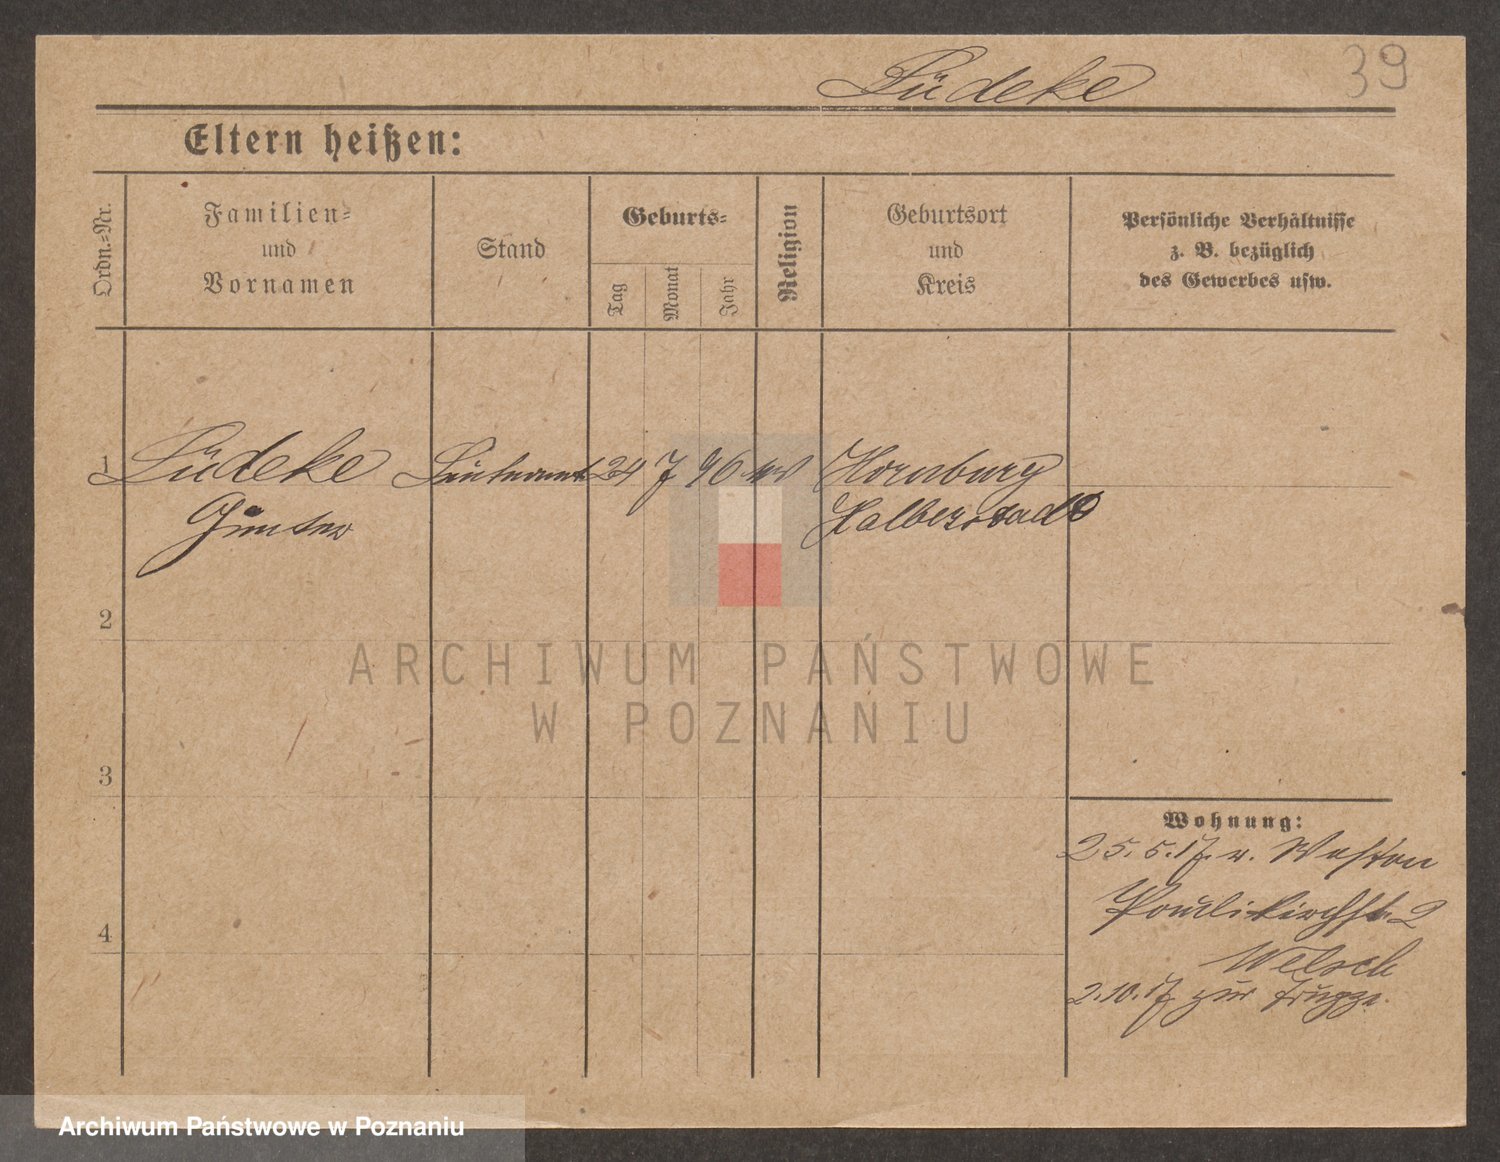 Lüdeke 39
Eltern heißen:
Ordn.-Nr.
Familien-
und
Vornamen
Stand
Geburts-
Tag
Monat
Jahr
Religion
Geburtsort
und
Kreis
Persönliche Verhältnisse
z. B. bezüglich
des Gewerbes usw.
1 Lüdeke Leutnant 24 7 96 ev Hornburg
Günter Halberstadt
2
ARCHIWUM PAŃSTWOWE
W POZNANIU
3
Wohnung:
25.5.17 v. Westen
Paulikirchst. 2
4
Welsch
2.10.17 zur Truppe
Archiwum Państwowe w Poznaniu